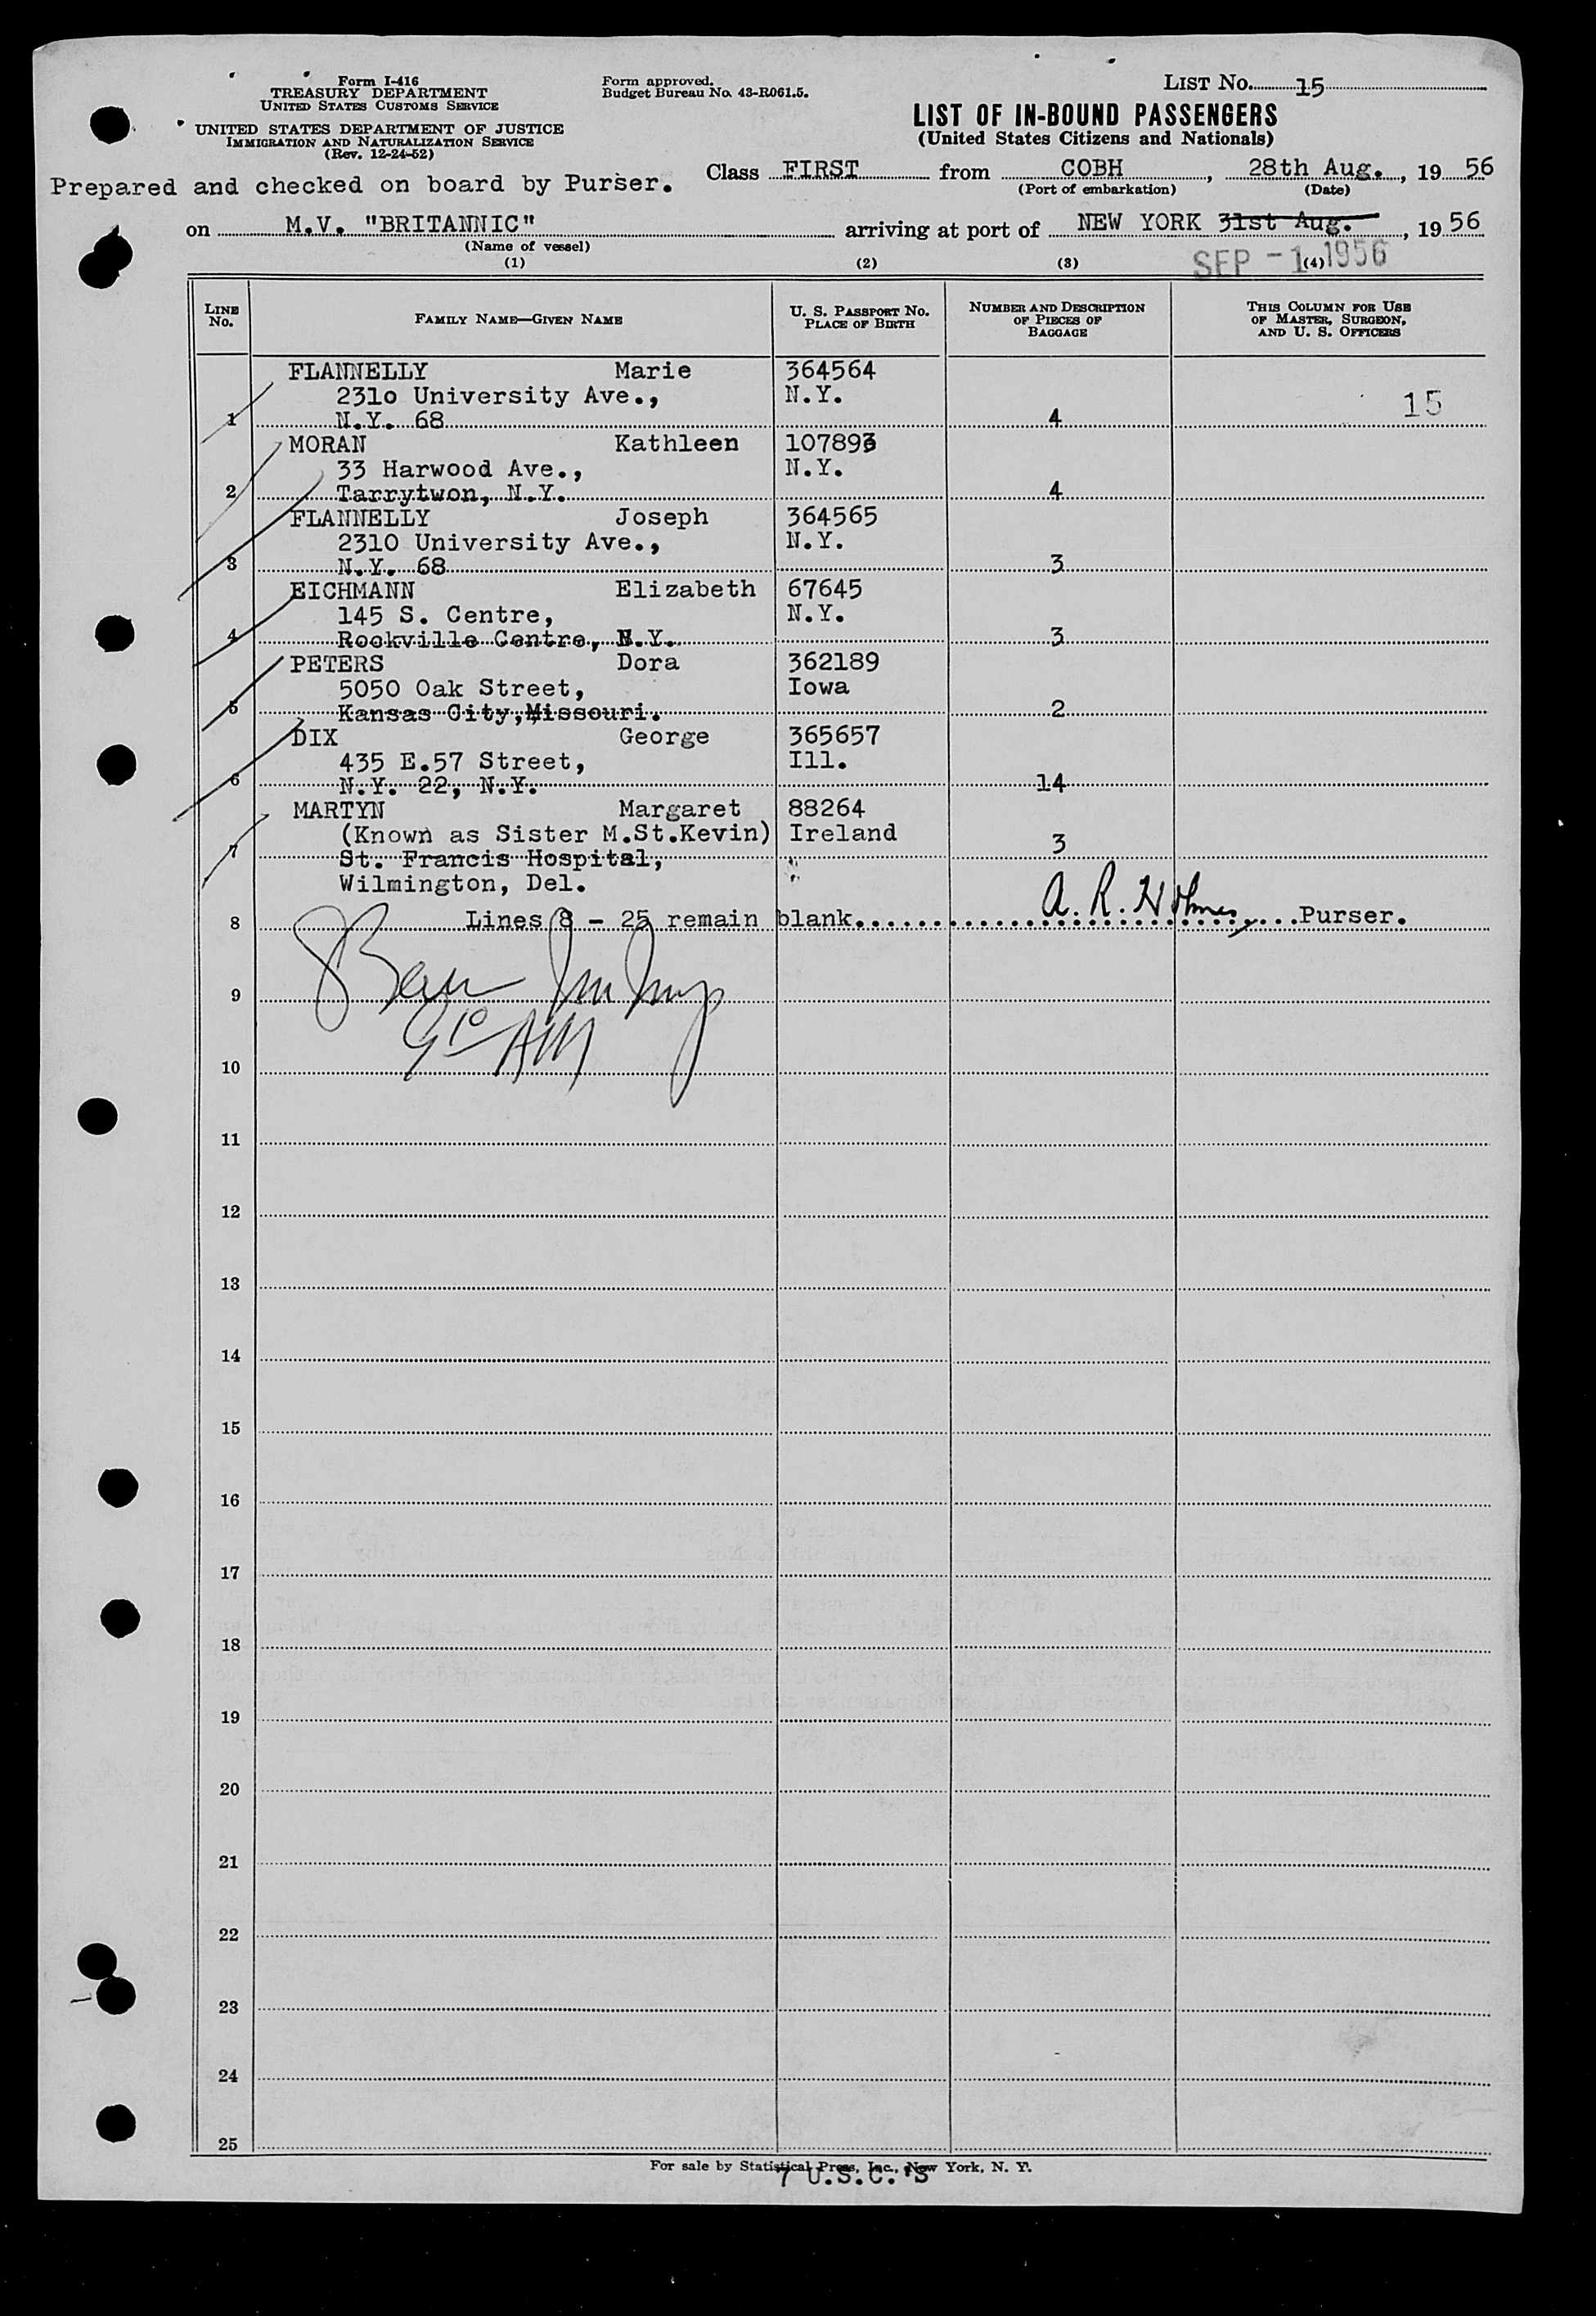 Form I-416
TREASURY DEPARTMENT
UNITED STATES CUSTOMS SERVICE
UNITED STATES DEPARTMENT OF JUSTICE
IMMIGRATION AND NATURALIZATION SERVICE
(Rev. 12-24-52)
Form approved.
Budget Bureau No. 43-R061.5.
LIST No. 15
LIST OF IN-BOUND PASSENGERS
(United States Citizens and Nationals)
Prepared and checked on board by Purser.
Class FIRST from COBH, 28th Aug., 19 56
(Port of embarkation) (Date)
on M.V. "BRITANNIC" arriving at port of NEW YORK 31st Aug., 19 56
(Name of vessel)
SEP - 1 1956
(1) (2) (3) (4)
LINE No. FAMILY NAME—GIVEN NAME U. S. PASSPORT No. PLACE OF BIRTH NUMBER AND DESCRIPTION OF PIECES OF BAGGAGE THIS COLUMN FOR USE OF MASTER, SURGEON, AND U. S. OFFICERS
FLANNELLY Marie 364564
2310 University Ave., N.Y. 15
1 N.Y. 68 4
MORAN Kathleen 107893
33 Harwood Ave., N.Y.
2 Tarrytwon, N.Y. 4
FLANNELLY Joseph 364565
2310 University Ave., N.Y.
3 N.Y. 68 3
EICHMANN Elizabeth 67645
145 S. Centre, N.Y.
4 Rockville Centre, N.Y. 3
PETERS Dora 362189
5050 Oak Street, Iowa
5 Kansas City, Missouri. 2
DIX George 365657
435 E.57 Street, Ill.
6 N.Y. 22, N.Y. 14
MARTYN Margaret 88264
(Known as Sister M.St.Kevin) Ireland
7 St. Francis Hospital, 3
Wilmington, Del.
8 Lines 8 - 25 remain blank. A. R. Holmes Purser.
9
9 10 AM
10
11
12
13
14
15
16
17
18
19
20
21
22
23
24
25
For sale by Statistical Press, Inc., New York, N. Y.
7 U.S.C.'S